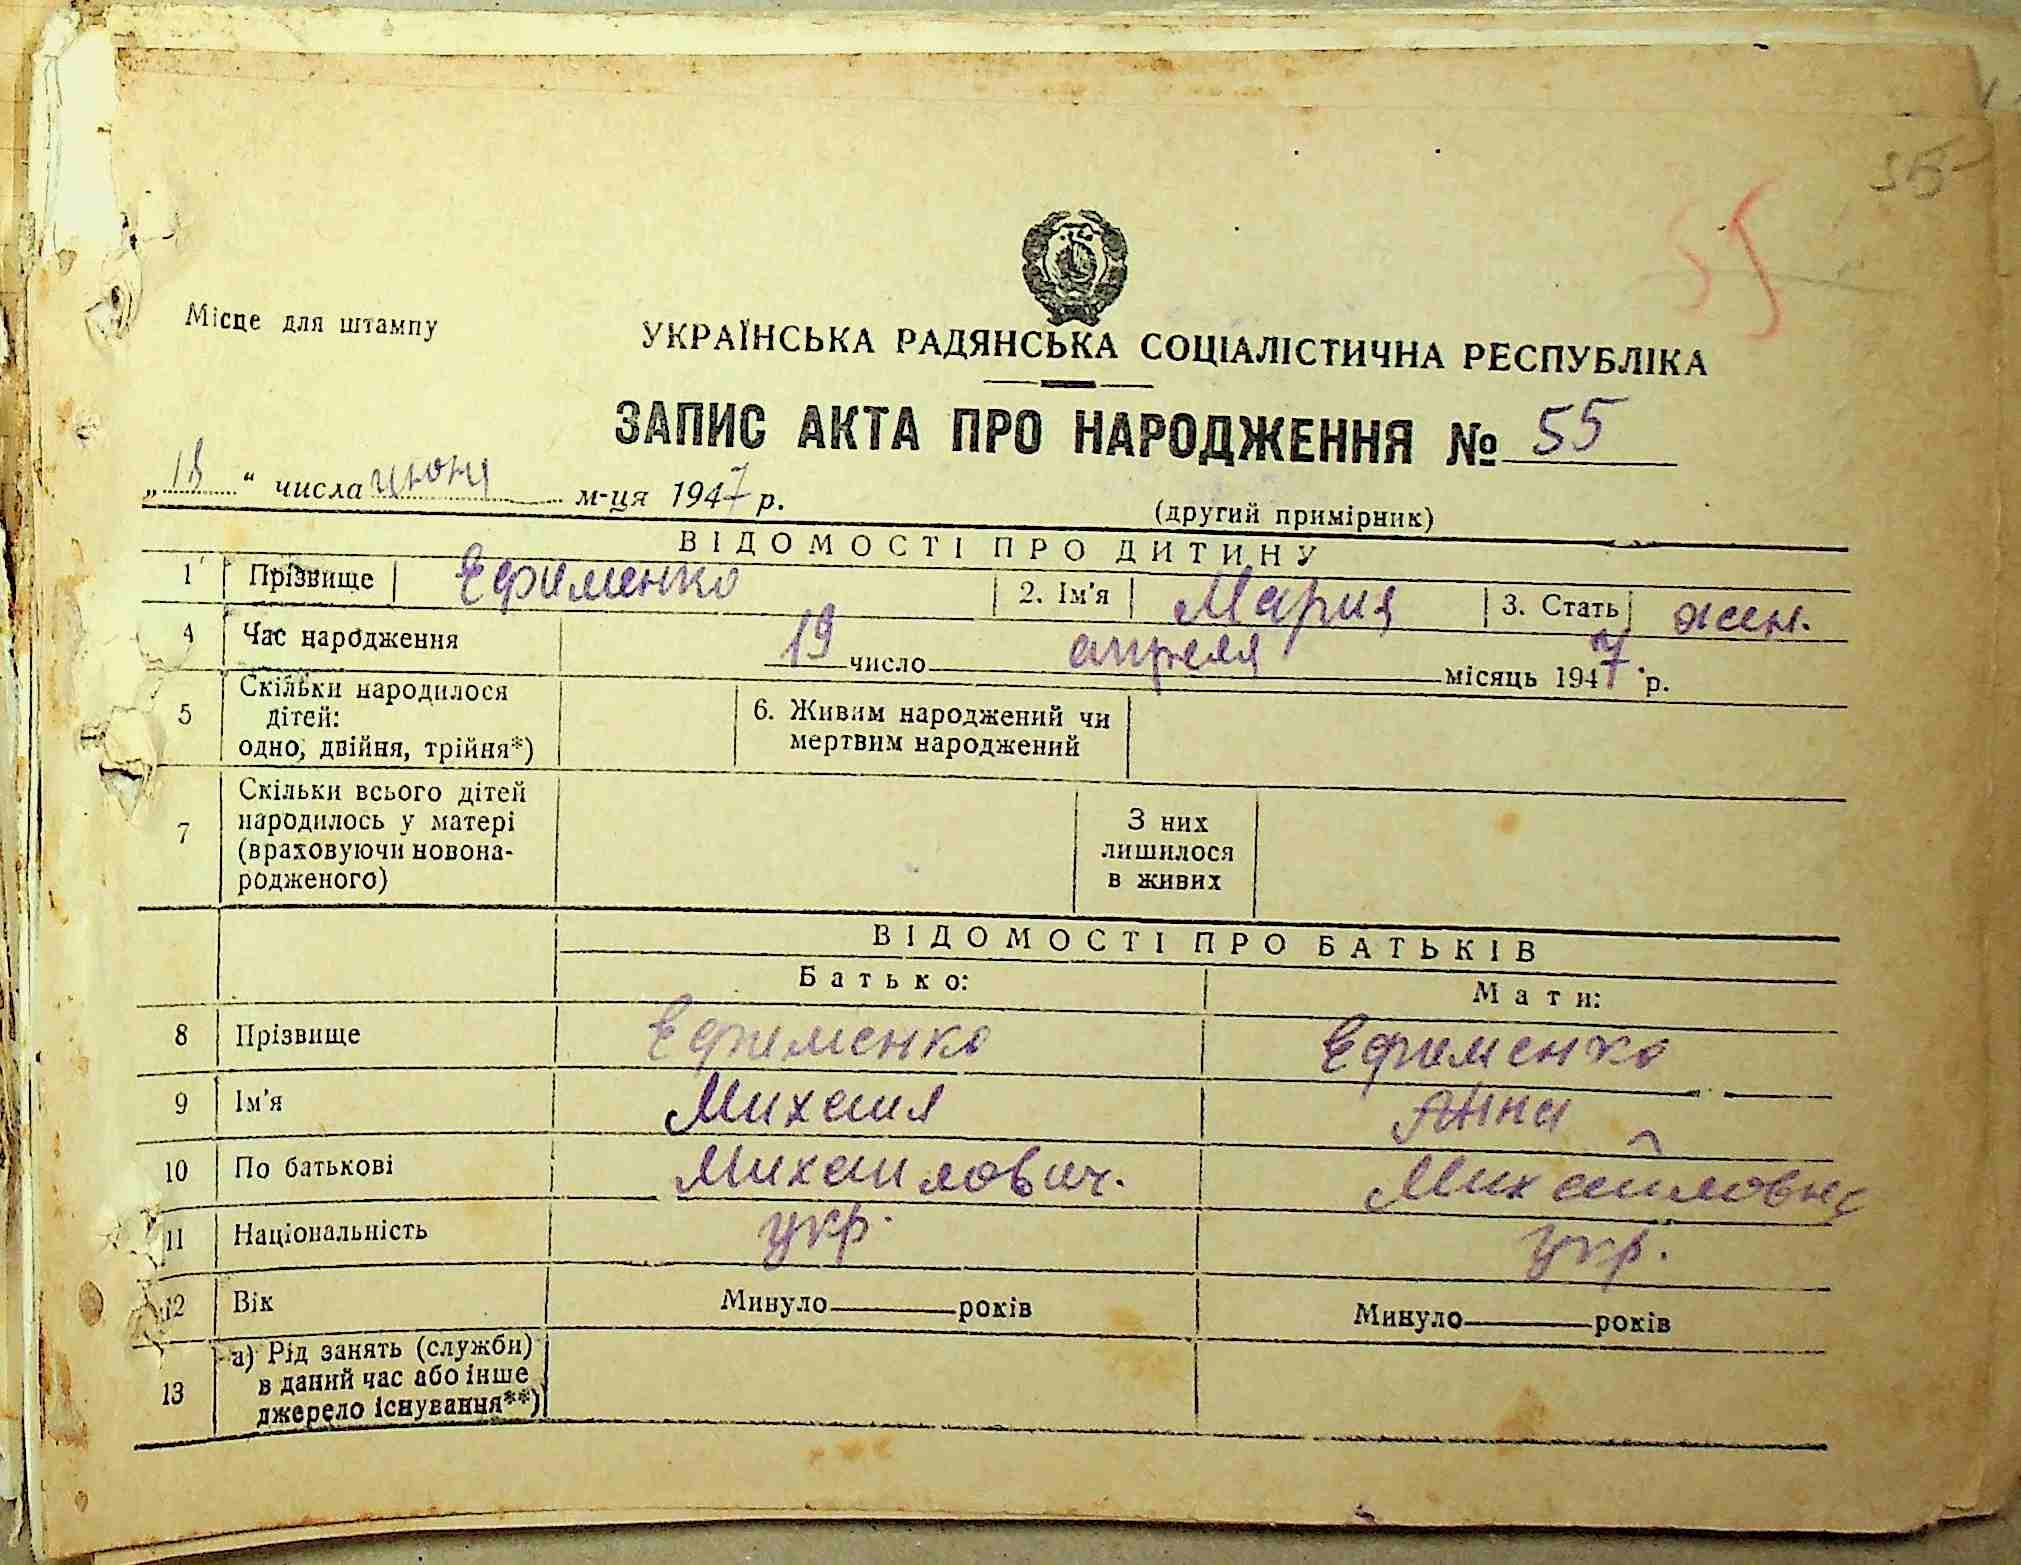 55
55
Місце для штампу
УКРАЇНСЬКА РАДЯНСЬКА СОЦІАЛІСТИЧНА РЕСПУБЛІКА
ЗАПИС АКТА ПРО НАРОДЖЕННЯ № 55
„18“ числа июня м-ця 1947 р.
(другий примірник)
ВІДОМОСТІ ПРО ДИТИНУ
1 Прізвище Ефименко 2. Ім'я Мария 3. Стать жен.
4 Час народження 19 число апреля місяць 1947 р.
5 Скільки народилося дітей: одно, двійня, трійня*) 6. Живим народжений чи мертвим народжений
7 Скільки всього дітей народилось у матері (враховуючи новонародженого) З них лишилося в живих
ВІДОМОСТІ ПРО БАТЬКІВ
Батько: Мати:
8 Прізвище Ефименко Ефименко
9 Ім'я Михаил Анна
10 По батькові Михайлович. Михайловна
11 Національність укр. укр.
12 Вік Минуло років Минуло років
13 а) Рід занять (служби) в даний час або інше джерело існування**)